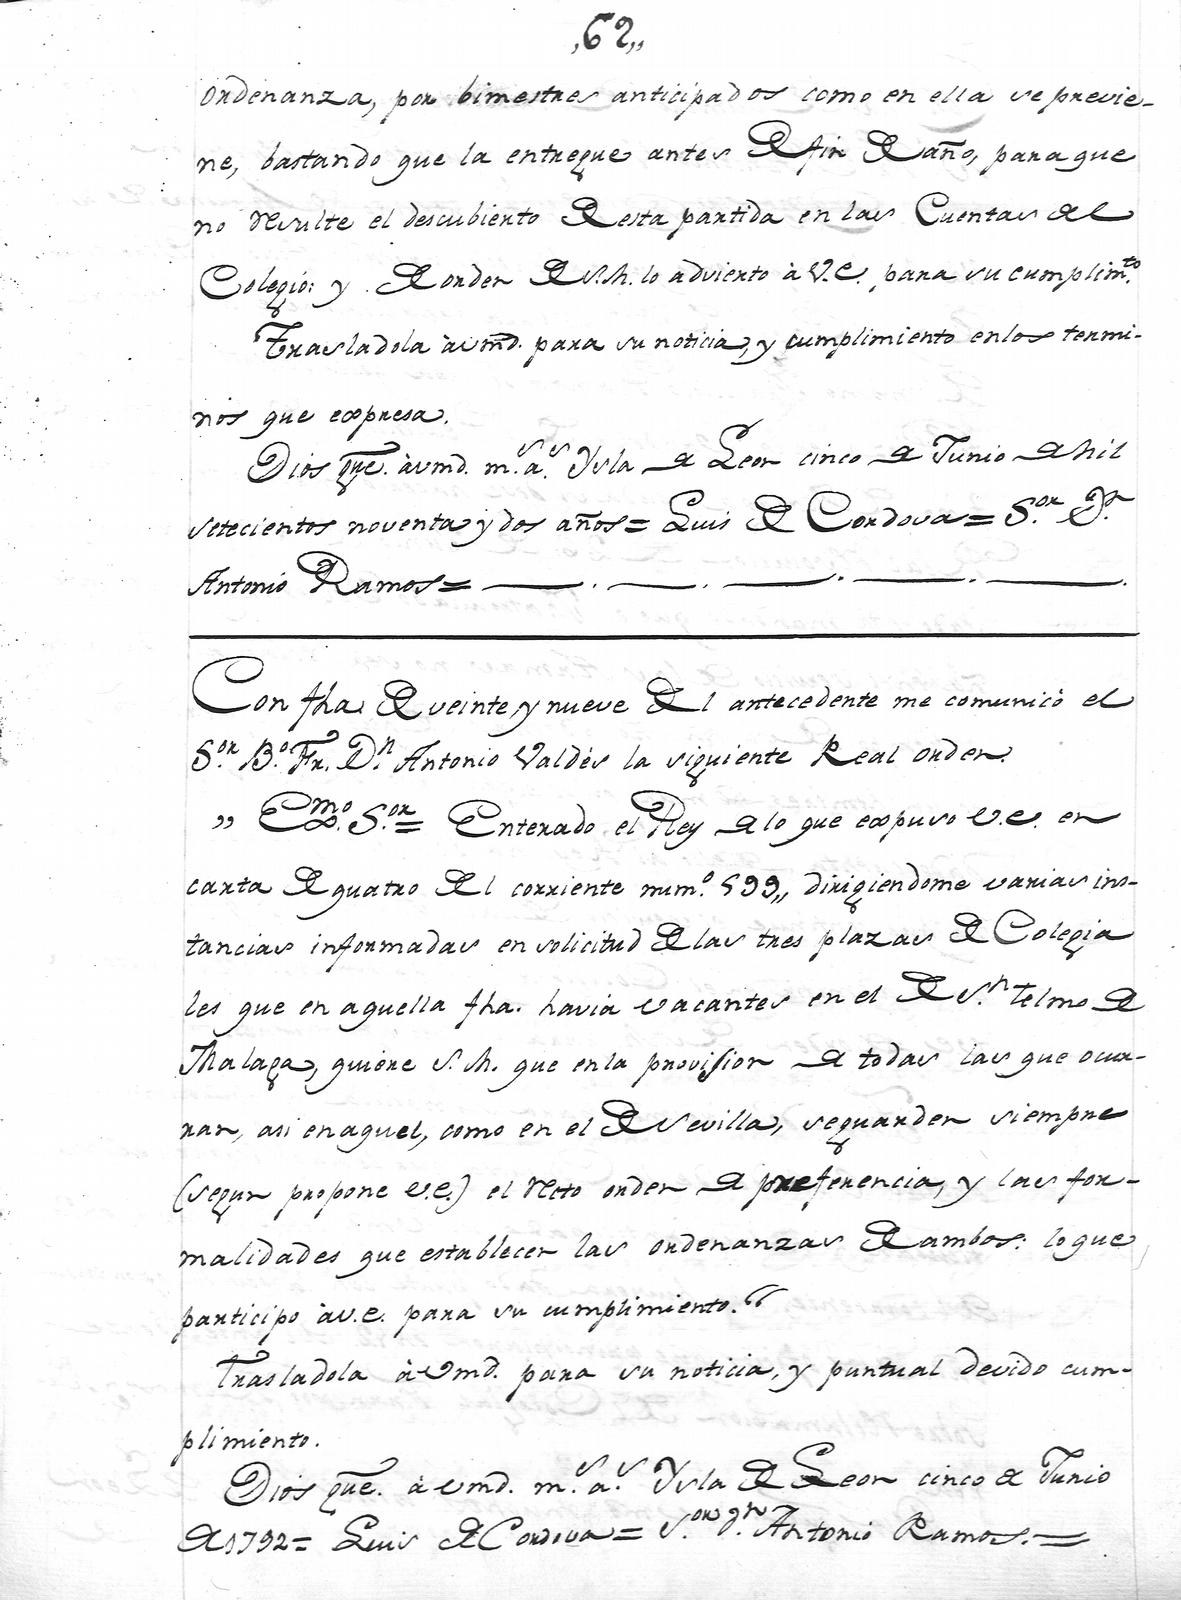 ,,62,,
ordenanza, por bimestres anticipados como en ella se previe-
ne, bastando que la entregue antes de fin de año, para que
no resulte el descubierto de esta partida en las Cuentas del
Colegio: y de orden de S.M. lo advierto à V.E. para su cumplim.to
Trasladola à vmd. para su noticia, y cumplimiento en los termi-
nos que expresa.
Dios gue. à vmd. m.s a.s Ysla de Leon cinco de Junio de mil
setecientos noventa y dos años = Luis de Cordova = S.or D.n
Antonio Ramos =
Con fha. de veinte y nueve del antecedente me comunicò el
S.or B.o Fr. D.n Antonio Valdès la siguiente Real orden.
,, Exmo. S.or = Enterado el Rey de lo que expuso V.E. en
carta de quatro del corriente num.o 599,, dirigiendome varias ins-
tancias informadas en solicitud de las tres plazas de Colegia
les que en aquella fha. havia vacantes en el de S.n Telmo de
Malaga, quiere S.M. que en la provision de todas las que ocur-
ran, asi en aquel, como en el de Sevilla, se guarden siempre
(segun propone V.E.) el recto orden de preferencia, y las for-
malidades que establecen las ordenanzas de ambos: lo que
participo à V.E. para su cumplimiento.“
Trasladola à Vmd. para su noticia, y puntual devido cum-
plimiento.
Dios gue. à vmd. m.s a.s Ysla de Leon cinco de Junio
de 1792 = Luis de Cordova = S.or D.n Antonio Ramos. =